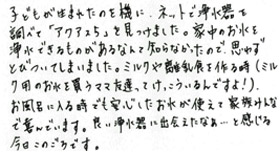 子どもが生まれたのを機に、ネットで浄水器を
調べて「アクアうら」を見つけました。家中のお水を
浄水できるものがあるなんて知らなかったので、思わず
とびついてしまいました。ミルクや離乳食を作る時（ミル
ク用のお水を買うママ友達って、けっこういるんですよ!）、
お風呂に入る時でも安心したお水が使えて家族みんな
で喜んでいます。良い浄水器に出会えたなあ…と感じる
今日このごろです。